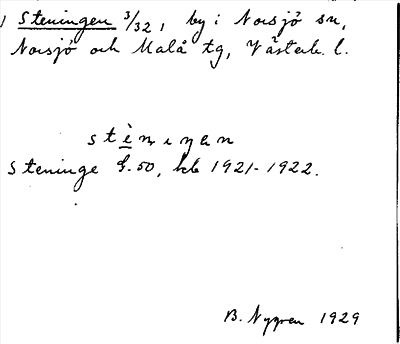 Steningen 3/32, by i Norsjö sn,
Norsjö och Malå tg, Västerb. l.
stè̱nıŋen
Steninge G.50, kb 1921-1922.
B. Nygren 1929